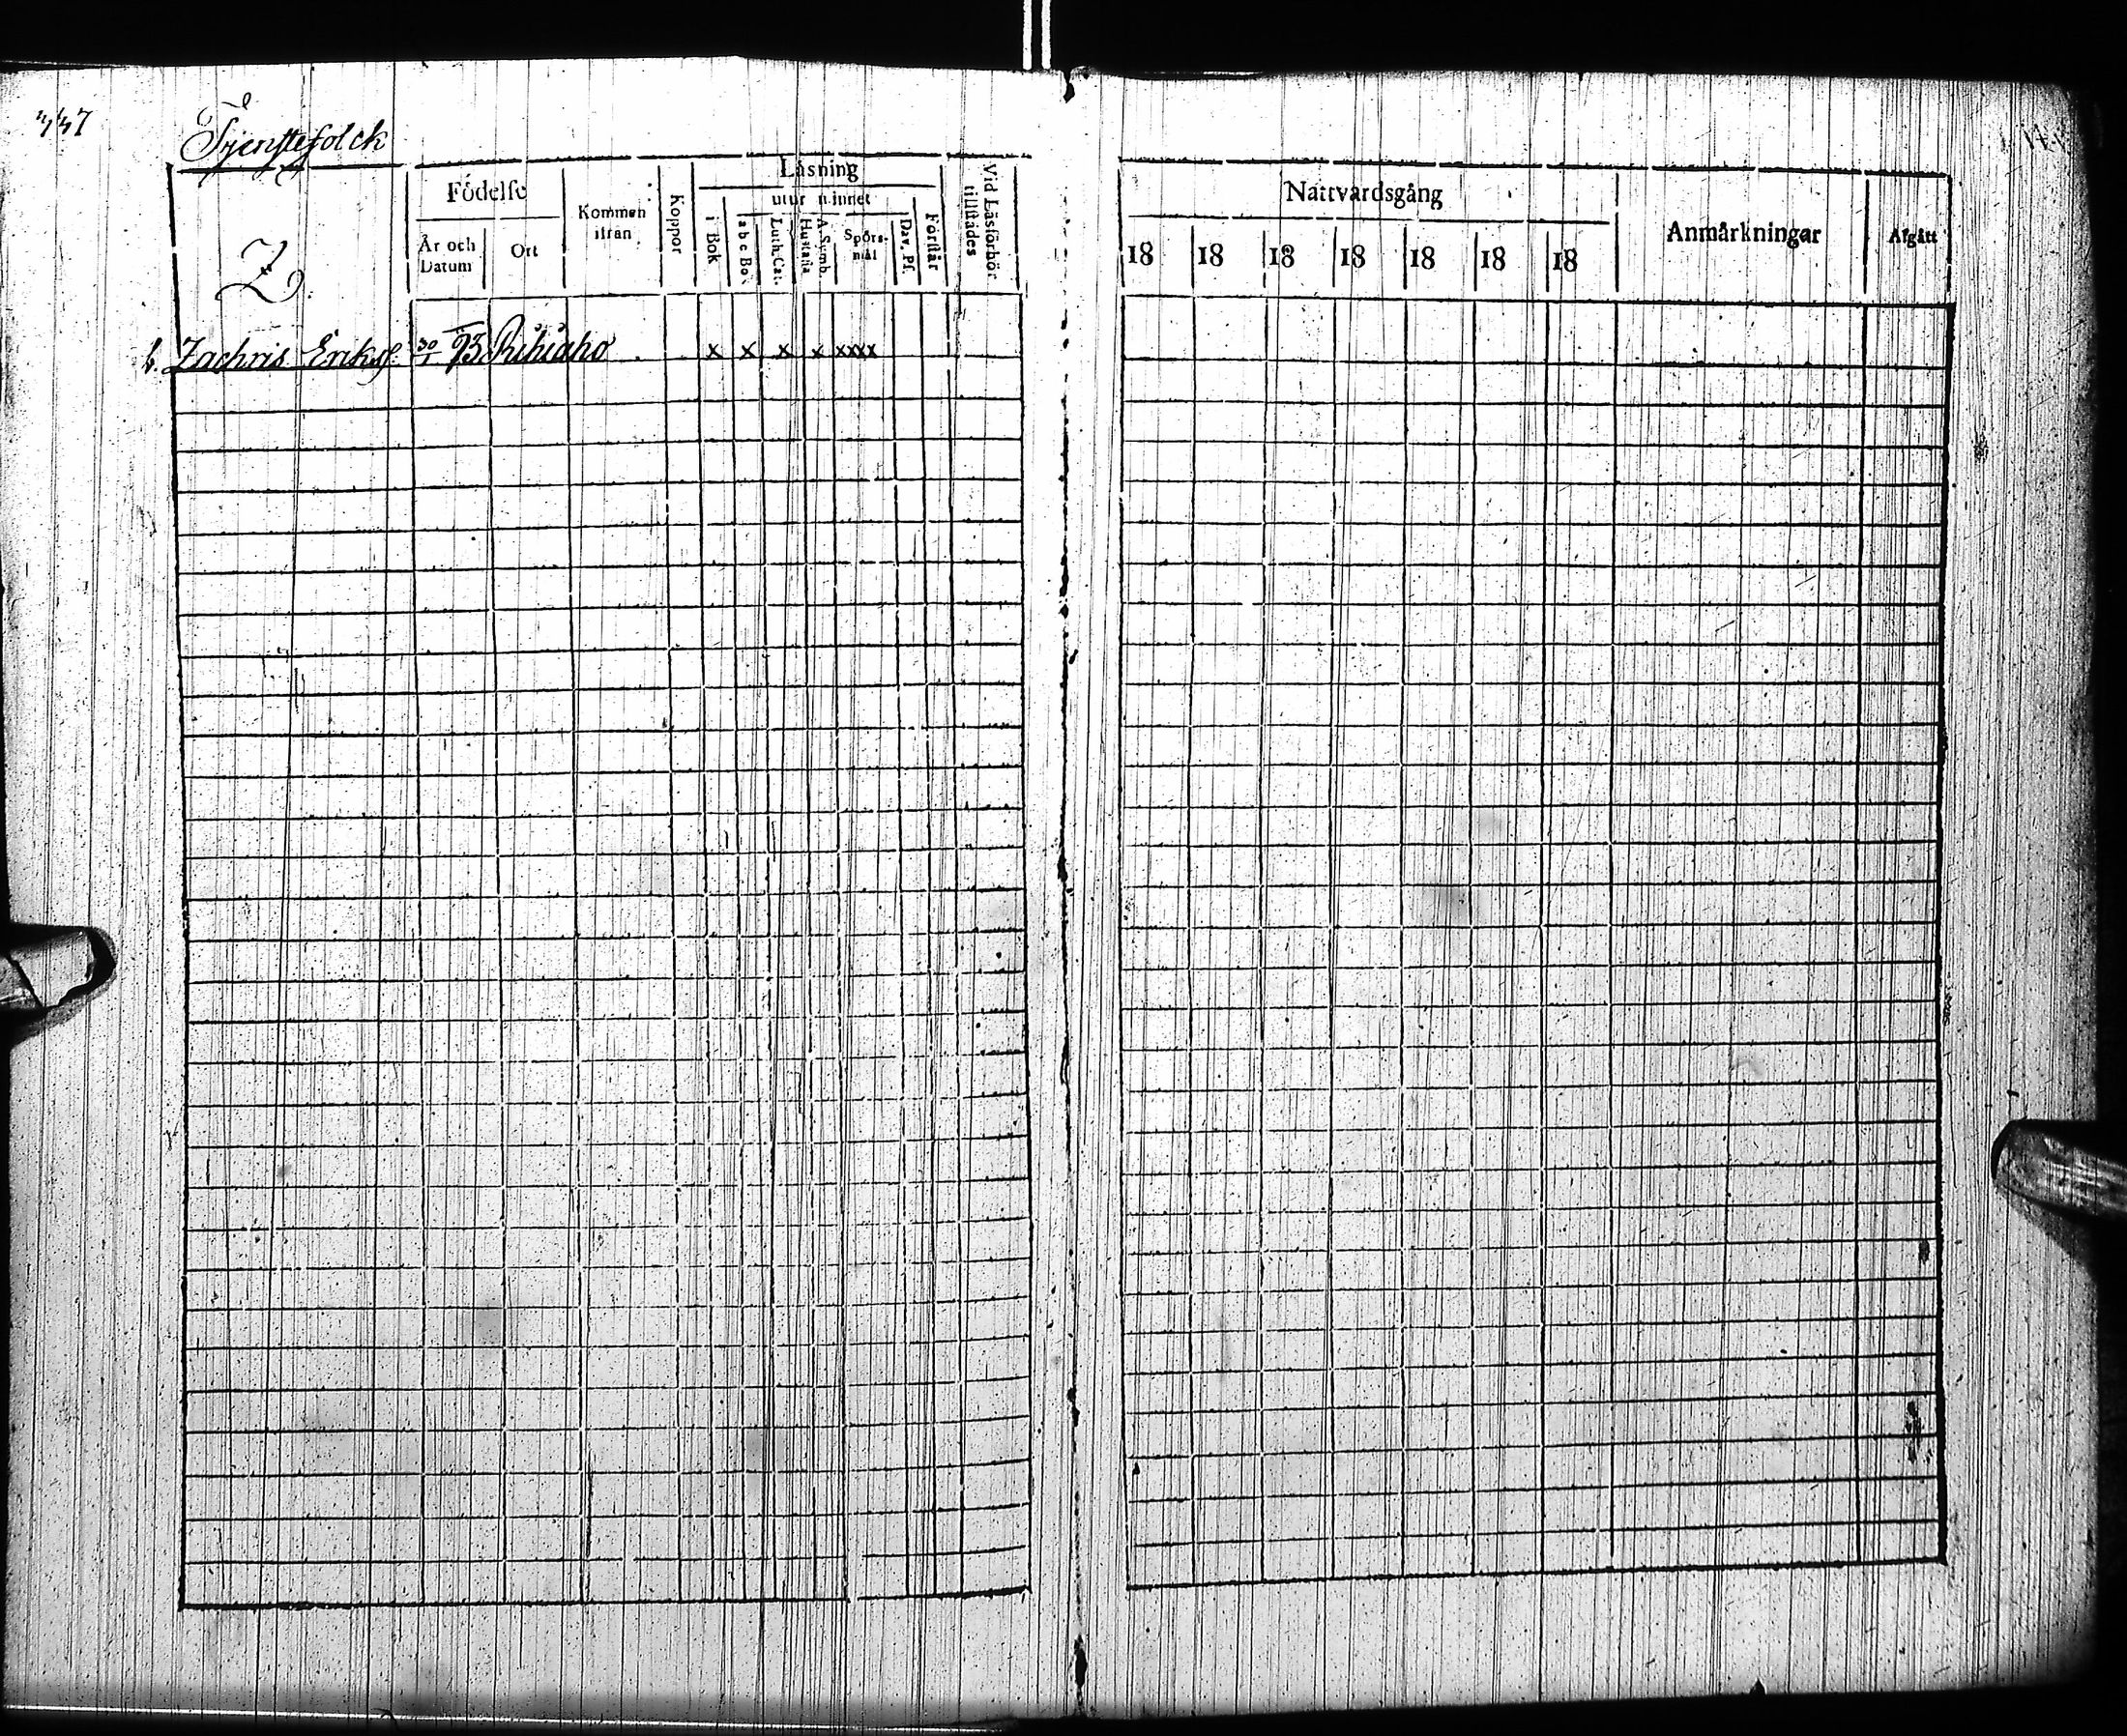 Tjenstefolck
Z.
Födelse
År och Datum
Ort
Kommen ifrån
Koppor
Läsning
i Bok
utur minnet
a b c Bok
Luth. Cat.
A. Symb. Hustafla
Spörsmål
Dav. Ps.
Förstår
Vid Läsförhör tillstädes
Nattvardsgång
18 18 18 18 18 18 18
Anmärkningar
Afgått
Zachris Eriks. 30/1 93 Rihiaho x x x x xxxx